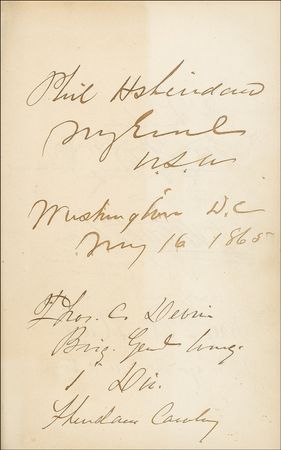 Phil H Sheridan
Maj Genl
U.S.A
Washington D.C
May 16 1865
Thos. C. Devin
Brig. Genl Comg.
1st Div.
Sheridans Cavalry